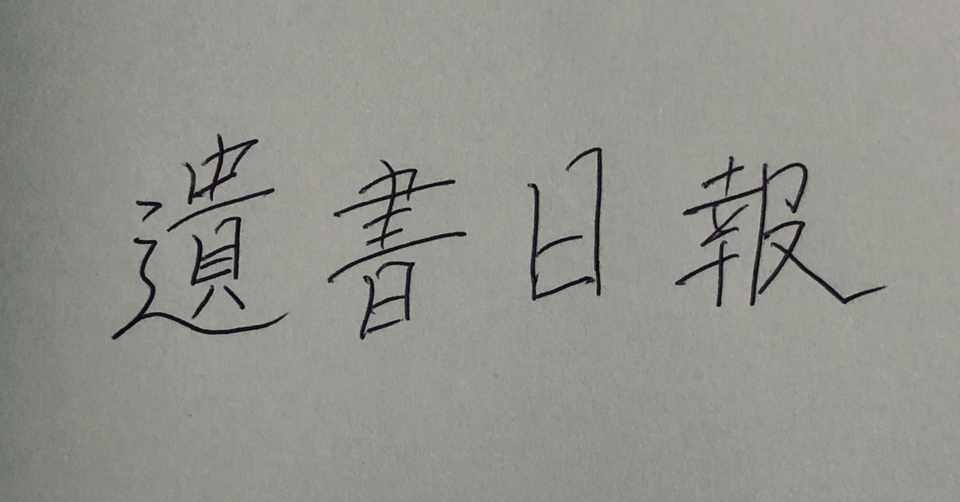 遺書日報